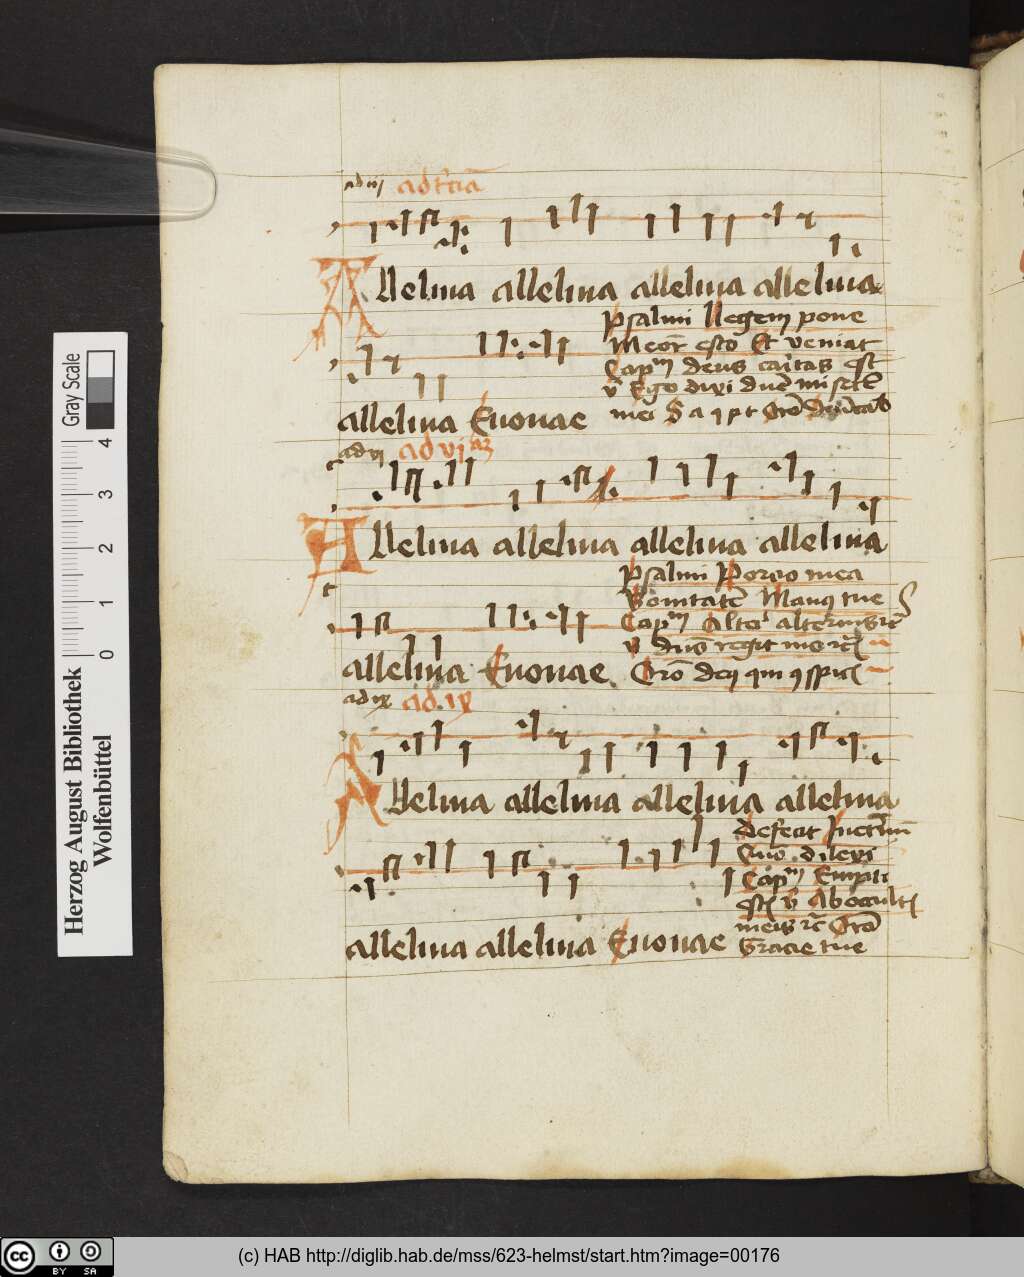 ad t'ciā
Alleluia alleluia alleluia alleluia
Psalmi Legem pone
Meōr esto Et veniat
Cap^m deus caritas est
v Ego dixi dne miserē
mei
alleluia Euouae
ad vj
Alleluia alleluia alleluia alleluia
Psalmi Porcio mea
Bonitatē Manus tue
Cap^m Alter alterius
alleluia Euouae
ad ix ad ix
Alleluia alleluia alleluia alleluia
defecit
Quō dilexi
Cap^m Empti
estis v Ab occultis
meis rc Orō
Gracie tue
alleluia alleluia Euouae
Herzog August Bibliothek
Wolfenbüttel
Gray Scale
0 1 2 3 4
cc BY SA
(c) HAB http://diglib.hab.de/mss/623-helmst/start.htm?image=00176